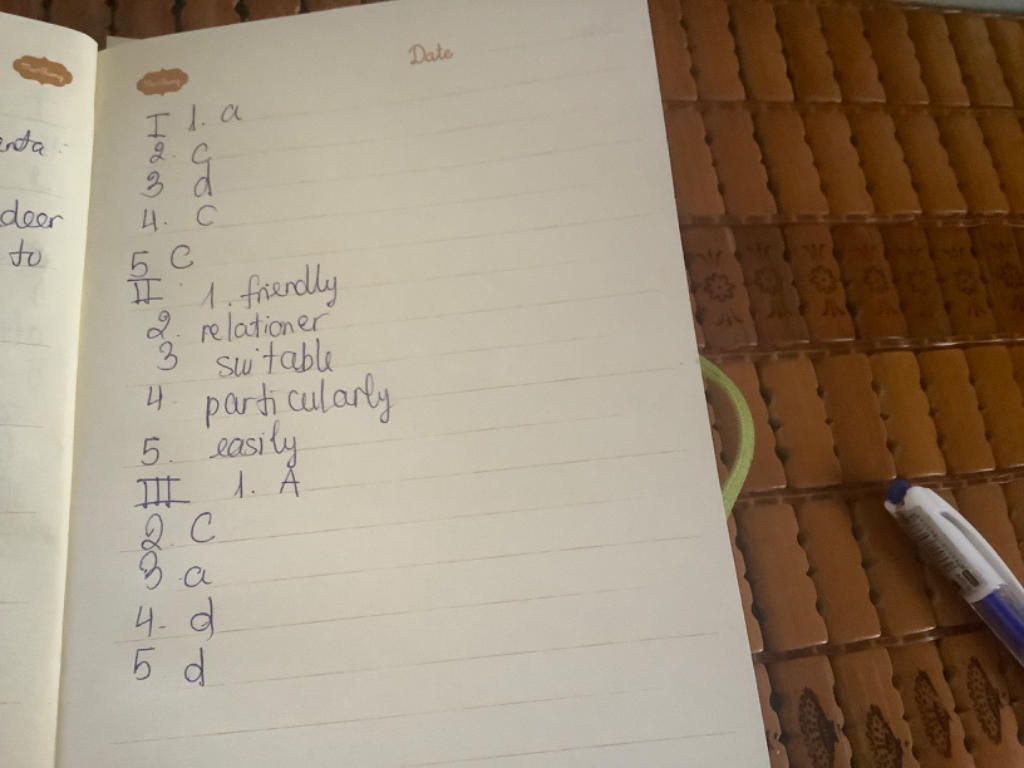 Date
I 1. a
2. C
3 d
4. C
5 C
II 1. friendly
2. relationer
3 suitable
4. particularly
5. easily
III 1. A
2. C
3 a
4. d
5 d
deer
to